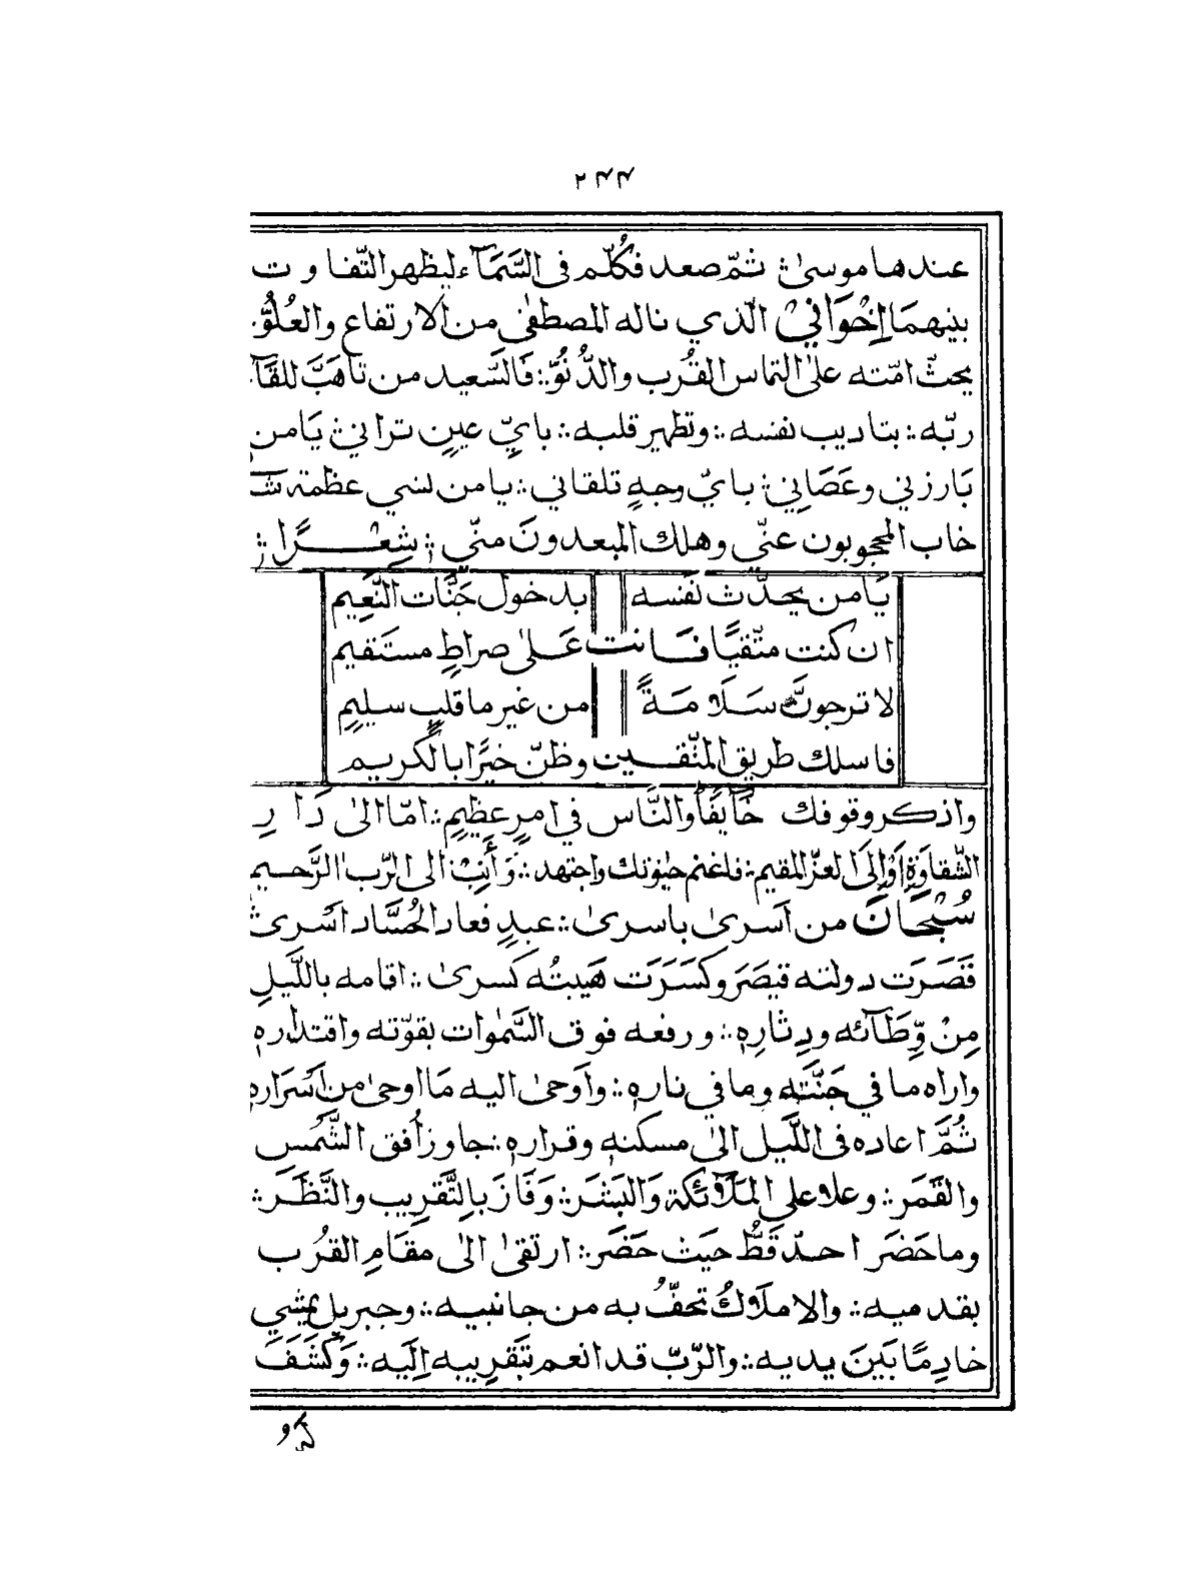 ٢٤٤
عندها موسىٰ ؞ ثمّ صعد فكُلّم فى السَّمَآء ليظهر التّفاوت
بينهمَا اِخْوَانِيْ الّذي ناله المصطفٰى من الارتفاع والعُلُوِّ
يحثّ امّته علىٰ التماس القُرب والدُّنُوّ ؞ فَالسَّعيد من تَاهَبَّ للقَآء
ربّه ؞ بتاديب نفسه ؞ وتطهير قلبه ؞ بايِّ عينٍ تراني ؞ يَا من
بَارزني وعَصَانِي ؞ بايّ وجهٍ تلقاني ؞ يا من نسي عظمة
خاب المحجوبون عنّي وهلك المبعدونَ منّي ؞ شِعْرًا ؞
يَا من يحدّث نَفسه بدخول جَنَّات النَّعِيم
ان كنت متّقيًا فَانت عَلىٰ صراطٍ مستَقيم
لا ترجونَّ سَلَامَةً من غير ما قلبٍ سليمٍ
فاسلك طريق المتّقين وظنّ خيرًا بالكريم
واذكر وقوفك خَآيِفًا والنَّاس في امرٍ عظيمٍ ؞ امّا الىٰ دَارِ
الشّقاوَةِ اَوْ اِلَى العزّ المقيم ؞ فاغنم حيٰوتك واجتهد ؞ وَأَنِبْ الى الرّب الرَّحيم
سُبْحَانَ من اَسرىٰ باسرىٰ ؞ عبدٍ فعاد الحُسَّاد اَسرىٰ
قَصَرَت دولته قيصَرَ وكَسَرَت هَيبتُه كَسرىٰ ؞ اقامه باللَّيلِ
مِنْ وِّطَآئه ودِثارِهٖ ؞ ورفعه فوق السَّمٰوات بقوّته واقتدارهٖ
واراه ما في جَنَّتهٖ وما في نارهٖ ؞ واَوحىٰ اليه مَا اوحىٰ من اَسْرَارهٖ
ثُمَّ اعاده فى اللَّيل الىٰ مسكنهٖ وقرارهٖ ؞ جاوز اُفق الشَّمْس
والقَمَر ؞ وعلا على المَلَآئكة وَالبَشَر ؞ وَفَازَ بالتَّقرِيب والنَّظَر ؞
وما حَضَر احدٌ قَطُّ حَيث حَضَر ؞ ارتقىٰ الىٰ مقَامِ القرُب
بقدميه ؞ والاملَاكُ تحفُّ به من جانبيه ؞ وجبريل يمشي
خادِمًا بَينَ يديه ؞ والرّبّ قد انعم بتَقرِيبه اِلَيه ؞ وَكَشَفَ